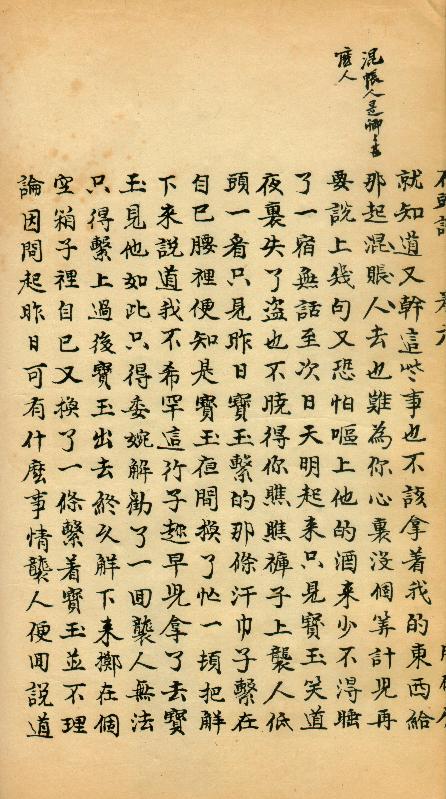 混帳人是卿〻甚
麼人
就知道又幹這些事也不該拿着我的東西給
那起混賬人去也難為你心裏沒個筭計児再
要說上幾句又恐怕嘔上他的酒来少不得睡
了一宿無話至次日天明起来只見寶玉笑道
夜裏失了盜也不曉得你瞧瞧褲子上襲人低
頭一看只見昨日寶玉繫的那條汗巾子繫在
自己腰裡便知是寶玉夜間換了忙一頓把解
下来說道我不希罕這行子趁早児拿了去寶
玉見他如此只得委婉解勸了一回襲人無法
只得繫上過後寶玉出去終久解下来擲在個
空箱子裡自己又換了一條繫着寶玉並不理
論因問起昨日可有什麼事情襲人便回說道